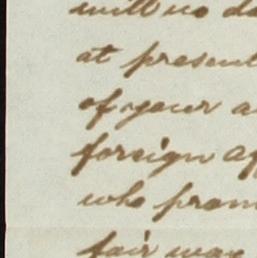 will no do
at present
of your a
foreign af
who prom
fair way